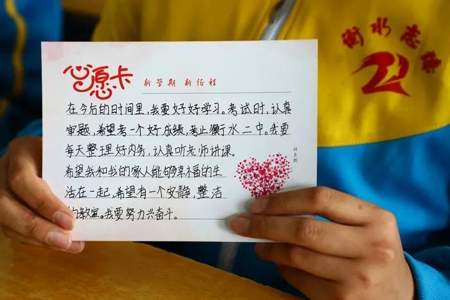 心愿卡
新学期 新征程
在今后的时间里，我要好好学习。考试时，认真
审题，希望考一个好成绩，考上衡水二中。我要
每天整理好内务，认真听老师讲课。
希望我和我的家人能够幸福的生
活在一起，希望有一个安静，整洁
的教室。我要努力兴奋斗。
衡水志臻